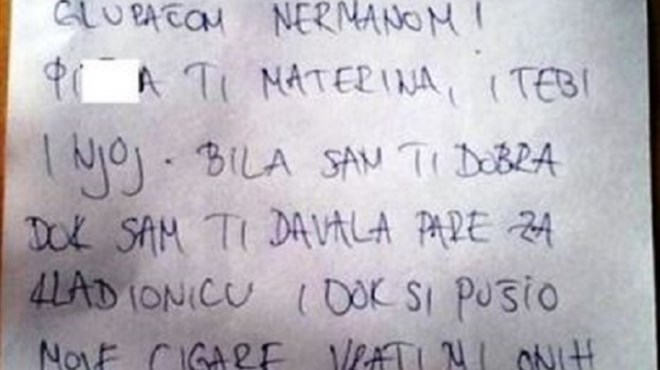 GLUPAČOM NERMANOM!
TI MATERINA, I TEBI
I NJOJ. BILA SAM TI DOBRA
DOK SAM TI DAVALA PARE ZA
KLADIONICU I DOK SI PUŠIO
MOJE CIGARE VRATI MI ONIH